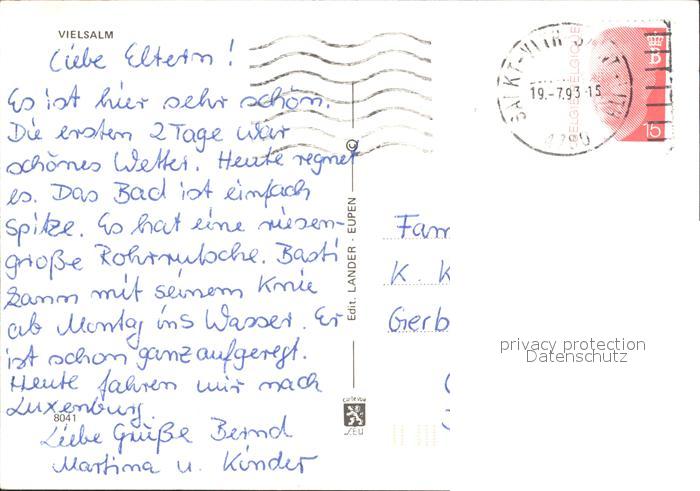 VIELSALM
Liebe Eltern!
Es ist hier sehr schön.
Die ersten 2 Tage war
schönes Wetter. Heute regnet
es. Das Bad ist einfach
Spitze. Es hat eine riesen-
große Rohrrutsche. Basti
kann mit seinem Knie
ab Montag ins Wasser. Er
ist schon ganz aufgeregt.
Heute fahren wir nach
Luxenburg.
8041
Liebe Grüße Bernd
Martina u. Kinder
© Edit. LANDER - EUPEN
19.-7.93-15
BELGIQUE
15
Fam
K. K
Gerb
privacy protection
Datenschutz